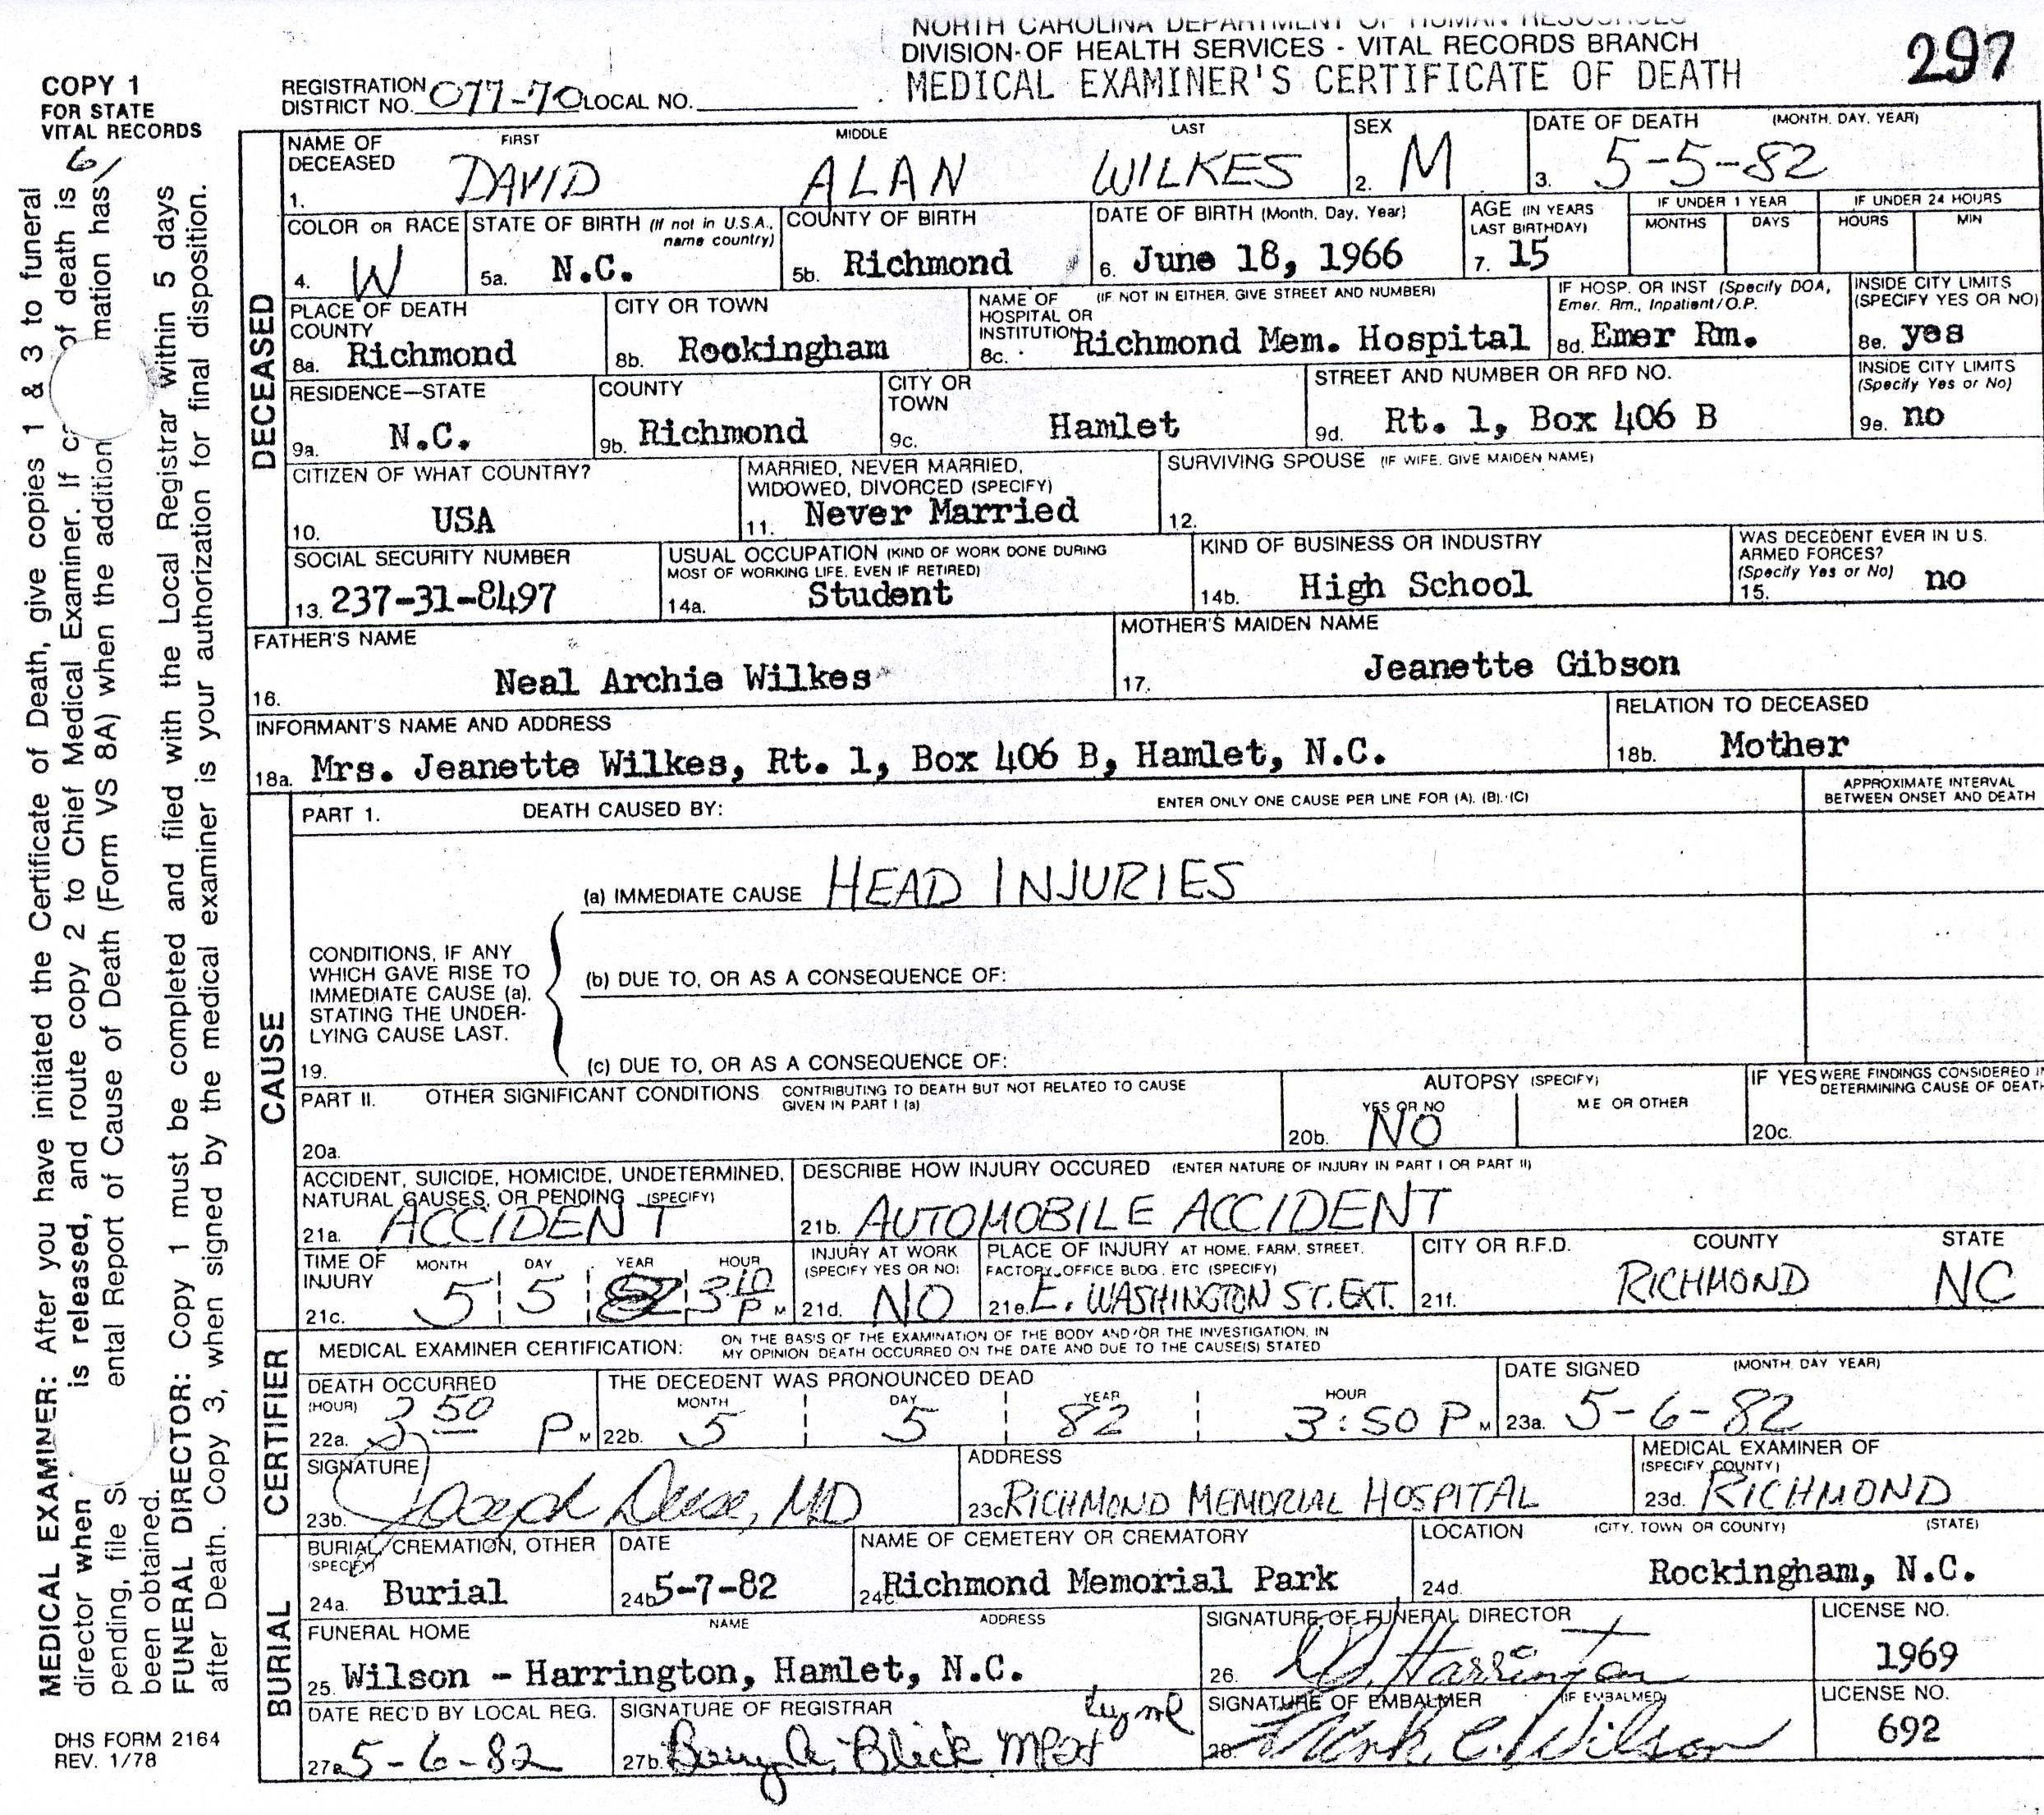 NORTH CAROLINA DEPARTMENT OF HUMAN RESOURCES
DIVISION OF HEALTH SERVICES - VITAL RECORDS BRANCH
MEDICAL EXAMINER'S CERTIFICATE OF DEATH
297
COPY 1
FOR STATE
VITAL RECORDS
REGISTRATION
DISTRICT NO. 077-70 LOCAL NO.
DECEASED
NAME OF DECEASED FIRST MIDDLE LAST
1. DAVID ALAN WILKES
SEX
2. M
DATE OF DEATH (MONTH, DAY, YEAR)
3. 5-5-82
COLOR OR RACE
4. W
STATE OF BIRTH (If not in U.S.A., name country)
5a. N.C.
COUNTY OF BIRTH
5b. Richmond
DATE OF BIRTH (Month, Day, Year)
6. June 18, 1966
AGE (IN YEARS LAST BIRTHDAY)
7. 15
IF UNDER 1 YEAR
MONTHS DAYS
IF UNDER 24 HOURS
HOURS MIN
PLACE OF DEATH
COUNTY
8a. Richmond
CITY OR TOWN
8b. Rockingham
NAME OF HOSPITAL OR INSTITUTION (IF NOT IN EITHER, GIVE STREET AND NUMBER)
8c. Richmond Mem. Hospital
IF HOSP. OR INST (Specify DOA, Emer. Rm., Inpatient/O.P.
8d. Emer Rm.
INSIDE CITY LIMITS
(SPECIFY YES OR NO)
8e. yes
RESIDENCE—STATE
9a. N.C.
COUNTY
9b. Richmond
CITY OR TOWN
9c. Hamlet
STREET AND NUMBER OR RFD NO.
9d. Rt. 1, Box 406 B
INSIDE CITY LIMITS
(Specify Yes or No)
9e. no
CITIZEN OF WHAT COUNTRY?
10. USA
MARRIED, NEVER MARRIED,
WIDOWED, DIVORCED (SPECIFY)
11. Never Married
SURVIVING SPOUSE (IF WIFE, GIVE MAIDEN NAME)
12.
SOCIAL SECURITY NUMBER
13. 237-31-8497
USUAL OCCUPATION (KIND OF WORK DONE DURING
MOST OF WORKING LIFE, EVEN IF RETIRED)
14a. Student
KIND OF BUSINESS OR INDUSTRY
14b. High School
WAS DECEDENT EVER IN U.S.
ARMED FORCES?
(Specify Yes or No)
15. no
FATHER'S NAME
16. Neal Archie Wilkes
MOTHER'S MAIDEN NAME
17. Jeanette Gibson
INFORMANT'S NAME AND ADDRESS
18a. Mrs. Jeanette Wilkes, Rt. 1, Box 406 B, Hamlet, N.C.
RELATION TO DECEASED
18b. Mother
CAUSE
PART 1. DEATH CAUSED BY: ENTER ONLY ONE CAUSE PER LINE FOR (A), (B), (C)
APPROXIMATE INTERVAL
BETWEEN ONSET AND DEATH
(a) IMMEDIATE CAUSE HEAD INJURIES
CONDITIONS, IF ANY
WHICH GAVE RISE TO
IMMEDIATE CAUSE (a),
STATING THE UNDER-
LYING CAUSE LAST.
19.
(b) DUE TO, OR AS A CONSEQUENCE OF:
(c) DUE TO, OR AS A CONSEQUENCE OF:
PART II. OTHER SIGNIFICANT CONDITIONS CONTRIBUTING TO DEATH BUT NOT RELATED TO CAUSE
GIVEN IN PART I (a)
20a.
AUTOPSY (SPECIFY)
YES OR NO ME OR OTHER
20b. NO
IF YES WERE FINDINGS CONSIDERED IN
DETERMINING CAUSE OF DEATH
20c.
ACCIDENT, SUICIDE, HOMICIDE, UNDETERMINED,
NATURAL CAUSES, OR PENDING (SPECIFY)
21a. ACCIDENT
DESCRIBE HOW INJURY OCCURED (ENTER NATURE OF INJURY IN PART I OR PART II)
21b. AUTOMOBILE ACCIDENT
TIME OF INJURY MONTH DAY YEAR HOUR
21c. 5 5 82 3 10 P M
INJURY AT WORK
(SPECIFY YES OR NO)
21d. NO
PLACE OF INJURY AT HOME, FARM, STREET,
FACTORY, OFFICE BLDG. ETC (SPECIFY)
21e. E. WASHINGTON ST. EXT.
CITY OR R.F.D. COUNTY STATE
21f. RICHMOND NC
CERTIFIER
MEDICAL EXAMINER CERTIFICATION: ON THE BASIS OF THE EXAMINATION OF THE BODY AND/OR THE INVESTIGATION, IN
MY OPINION DEATH OCCURRED ON THE DATE AND DUE TO THE CAUSE(S) STATED
DEATH OCCURRED
(HOUR)
22a. 3 50 P M
THE DECEDENT WAS PRONOUNCED DEAD
MONTH DAY YEAR HOUR
22b. 5 5 82 3:50 P M
DATE SIGNED (MONTH DAY YEAR)
23a. 5-6-82
SIGNATURE
23b. Joseph Deese, MD
ADDRESS
23c RICHMOND MEMORIAL HOSPITAL
MEDICAL EXAMINER OF
(SPECIFY COUNTY)
23d. RICHMOND
BURIAL
BURIAL, CREMATION, OTHER
(SPECIFY)
24a. Burial
DATE
24b 5-7-82
NAME OF CEMETERY OR CREMATORY
24c Richmond Memorial Park
LOCATION (CITY, TOWN OR COUNTY) (STATE)
24d. Rockingham, N.C.
FUNERAL HOME NAME ADDRESS
25. Wilson - Harrington, Hamlet, N.C.
SIGNATURE OF FUNERAL DIRECTOR
26. Harrington
LICENSE NO.
1969
DATE REC'D BY LOCAL REG.
27a 5-6-82
SIGNATURE OF REGISTRAR
27b.
SIGNATURE OF EMBALMER (IF EMBALMED)
28. Frank C. Wilson
LICENSE NO.
692
MEDICAL EXAMINER: After you have initiated the Certificate of Death, give copies 1 & 3 to funeral
director when is released, and route copy 2 to Chief Medical Examiner. If of death is
pending, file ental Report of Cause of Death (Form VS 8A) when the addition mation has
been obtained.
FUNERAL DIRECTOR: Copy 1 must be completed and filed with the Local Registrar within 5 days
after Death. Copy 3, when signed by the medical examiner is your authorization for final disposition.
DHS FORM 2164
REV. 1/78